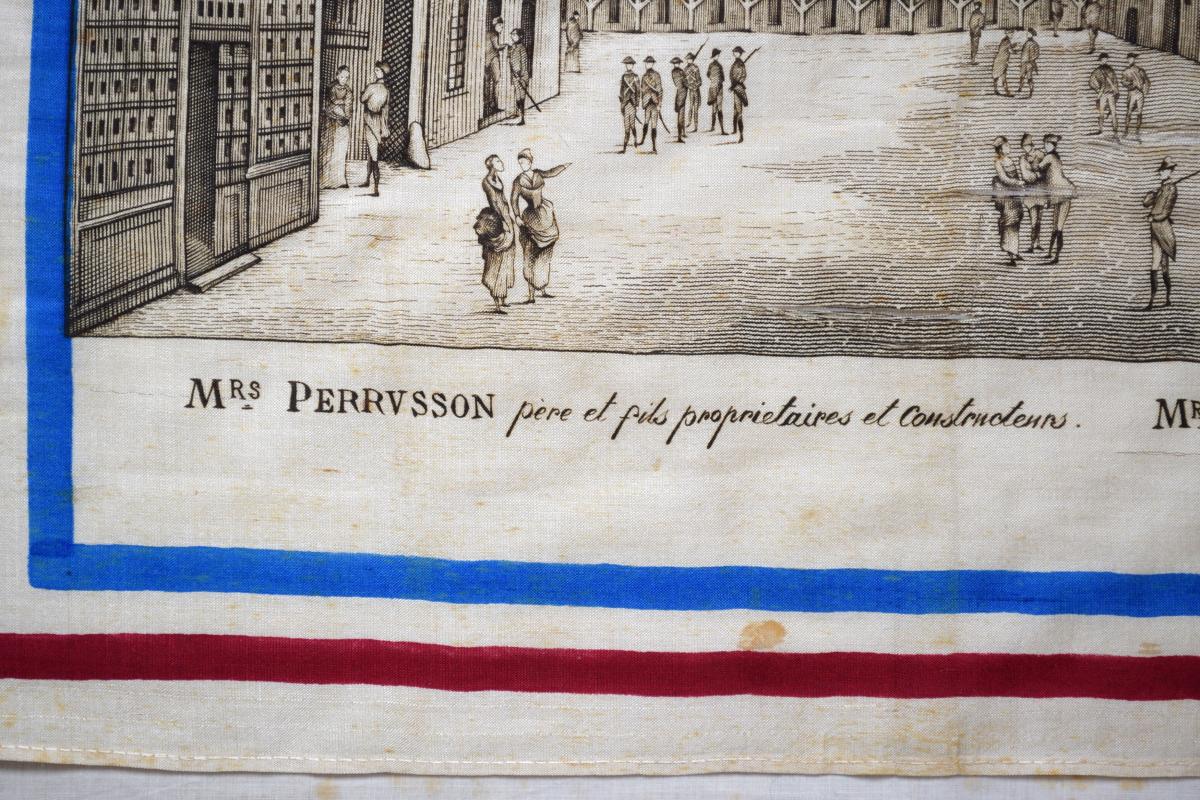 MRS PERRVSSON père et fils proprietaires et Constructeurs. MR